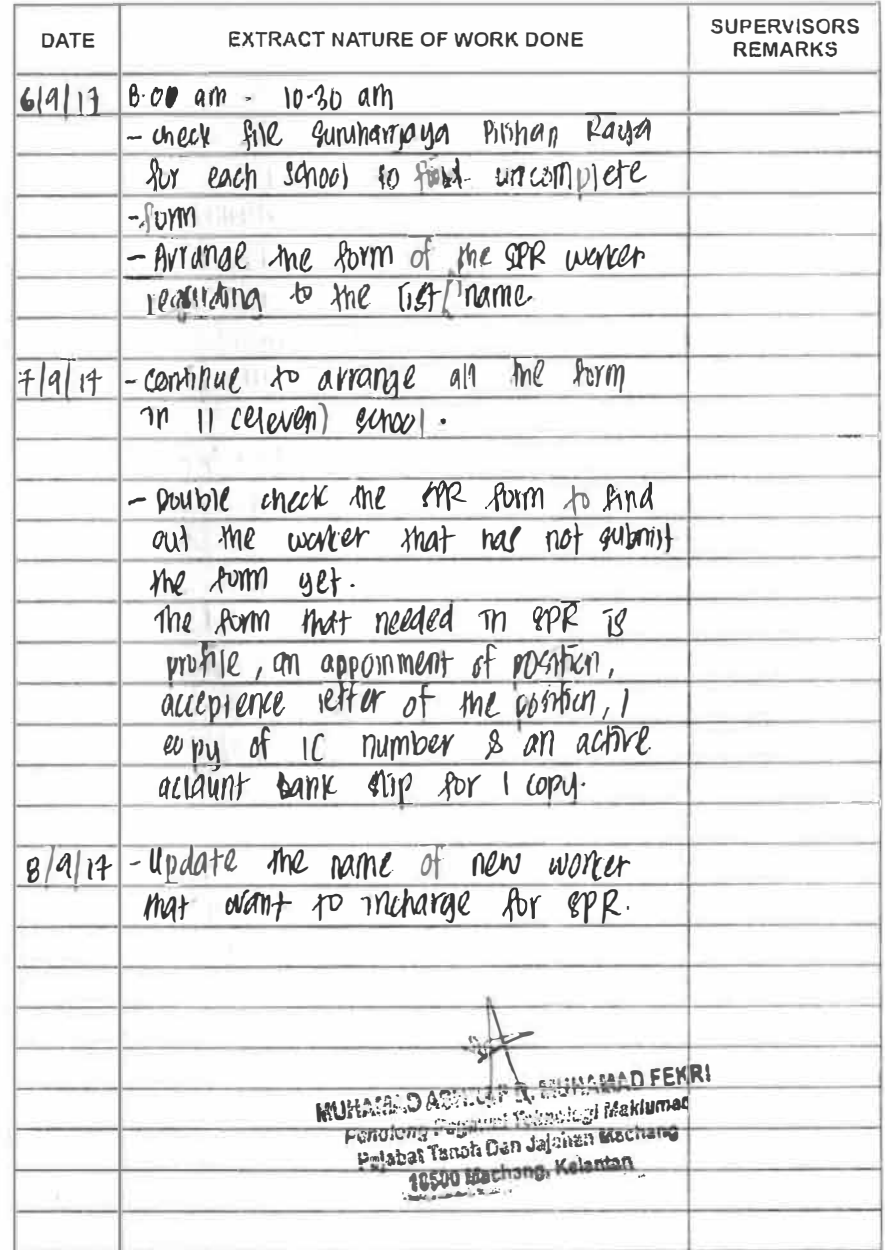 DATE EXTRACT NATURE OF WORK DONE SUPERVISORS REMARKS
6/9/17 8.00 am - 10.30 am
- check file Suruhanjaya Pilihan Raya
for each school to find uncomplete
- form
- Arrange the form of the SPR worker
regarding to the list name.
7/9/17 - continue to arrange all the form
in 11 (eleven) school.
- Double check the SPR form to find
out the worker that has not submit
the form yet.
The form that needed in SPR is
profile, an appoinment of position,
acceptence letter of the position, 1
copy of IC number & an active
account bank slip for 1 copy.
8/9/17 - Update the name of new worker
that want to incharge for SPR.
MUHAMAD FEKRI
Penolong Pegawai Teknologi Maklumat
Pejabat Tanah Dan Jajahan Machang
18500 Machang, Kelantan